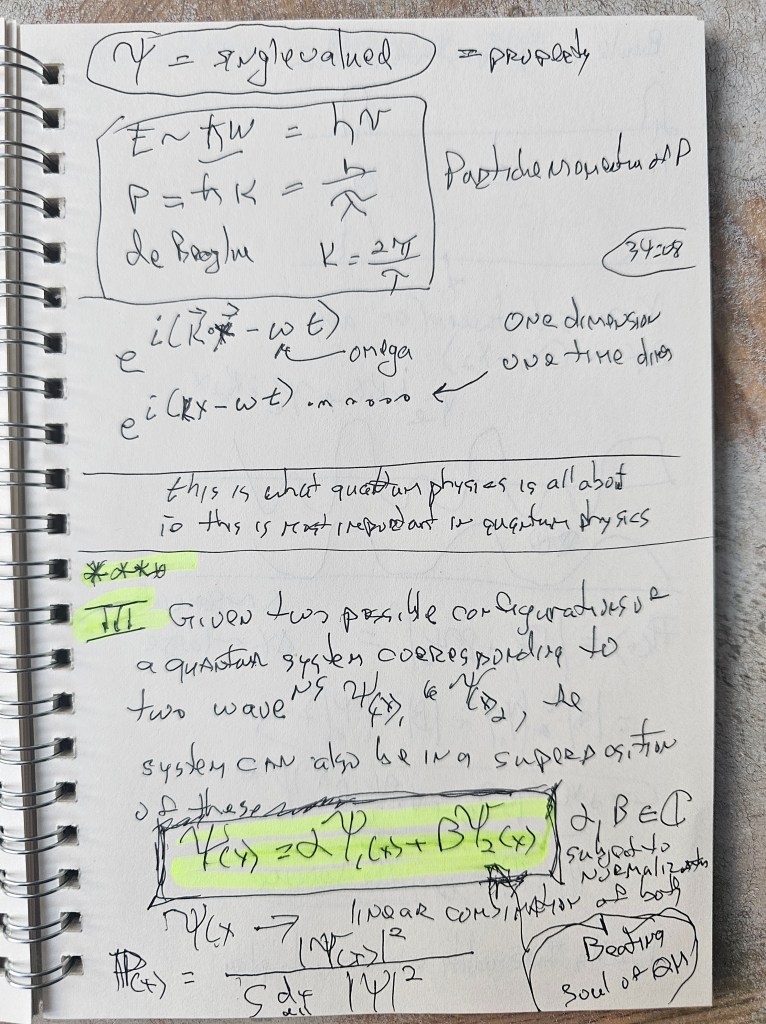 Ψ = singlevalued = property
E ~ ħω = hν
P = ħK = h/λ
Particle Momentum of P
de Broglie K = 2π/T
34:08
e^i(k⃗·x⃗ - ωt)
omega
one dimension
one time dim
e^i(kx - ωt)
this is what quantum physics is all about
this is most important in quantum physics
****
III Given two possible configurations of
a quantum system corresponding to
two wave Ψ(x)₁ & Ψ(x)₂, the
system can also be in a superposition
of these
Ψ(x) = αΨ₁(x) + βΨ₂(x)
α, β ∈ ℂ
subject to
normalization
Ψ(x → linear combination of both
ℙ(x) = |Ψ(x)|² / ∫all dx |Ψ|²
Beating
Soul of QM